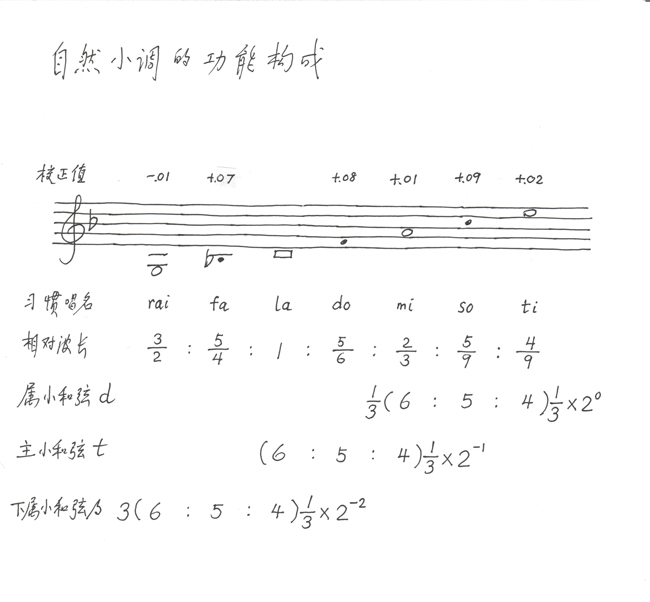 自然小调的功能构成
校正值 -.01 +.07 +.08 +.01 +.09 +.02
习惯唱名 rai fa la do mi so ti
相对波长 3/2 : 5/4 : 1 : 5/6 : 2/3 : 5/9 : 4/9
属小和弦 d 1/3(6 : 5 : 4)1/3×2⁰
主小和弦 t (6 : 5 : 4)1/3×2⁻¹
下属小和弦 3(6 : 5 : 4)1/3×2⁻²